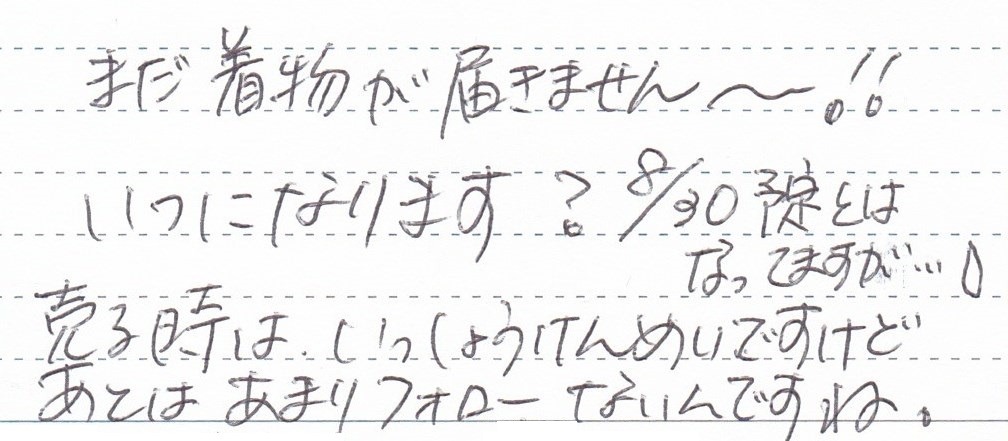 まだ着物が届きません〜!!
いつになります？8/30予定とは
なってますが…
売る時は、いっしょうけんめいですけど
あとはあまりフォローないんですね。